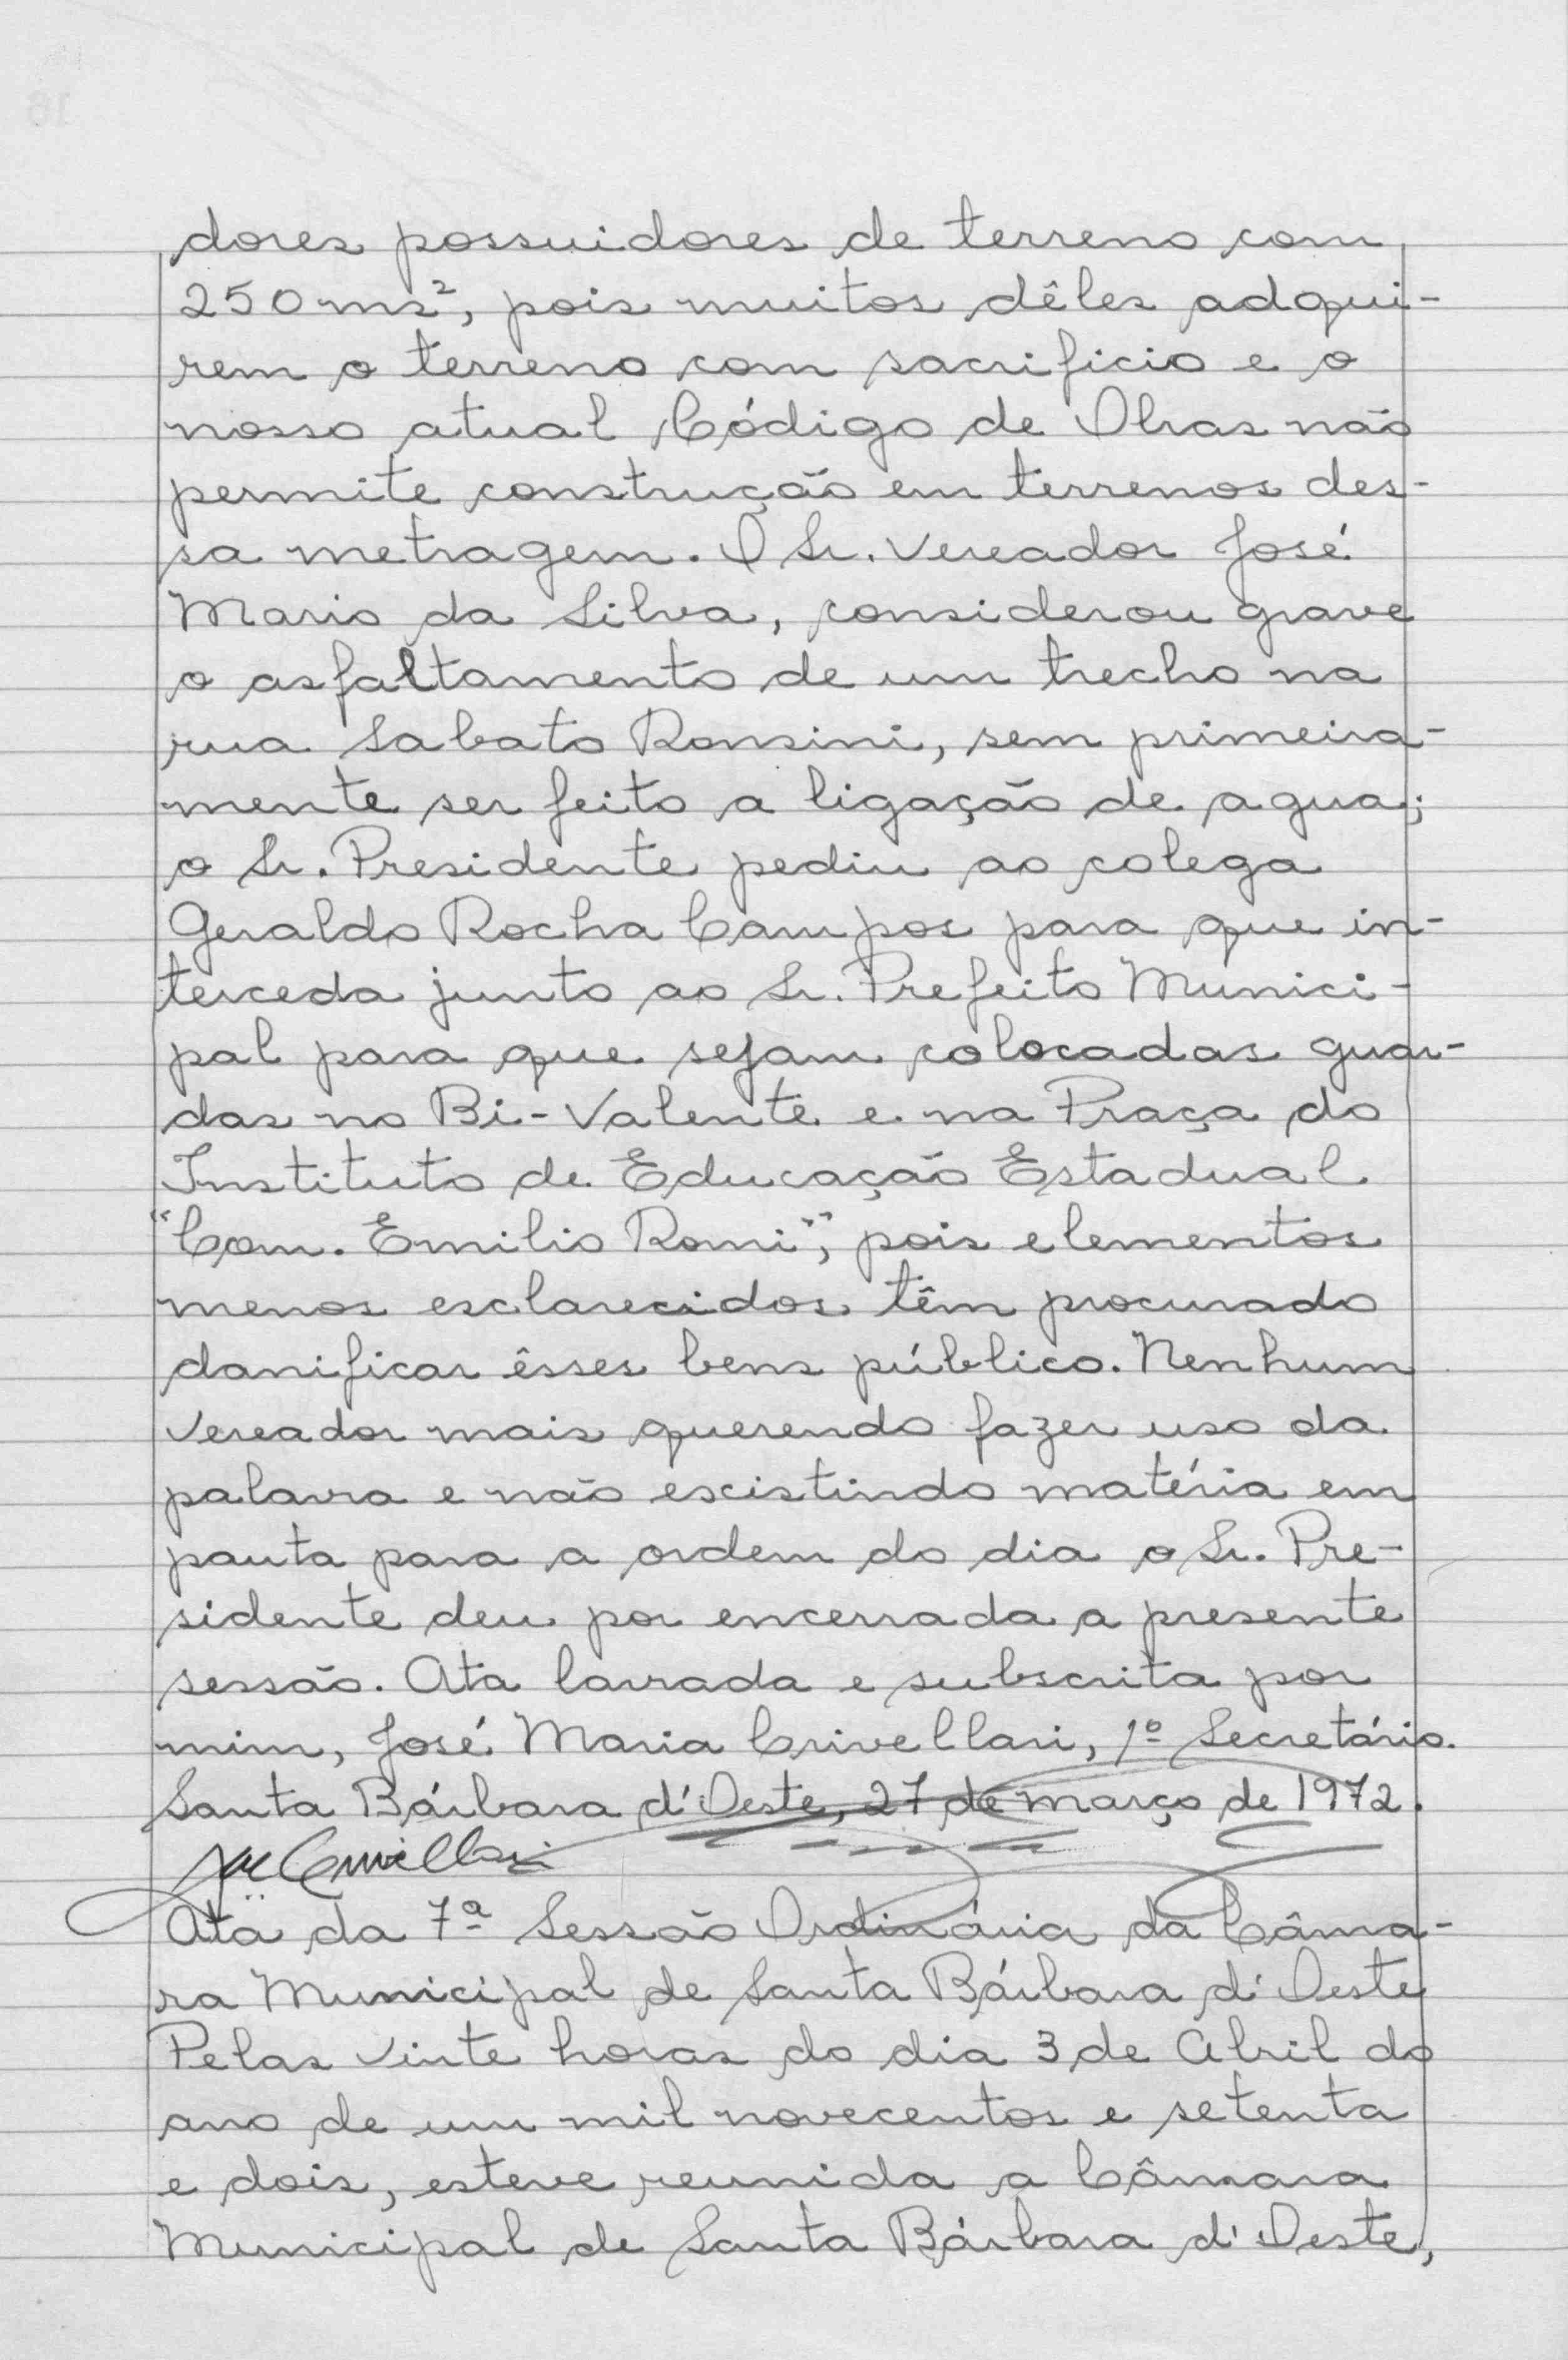 dores possuidores de terreno com
250 ms², pois muitos dêles adqui-
rem o terreno com sacrificio e o
nosso atual Código de Obras não
permite construção em terrenos des-
sa metragem. O Sr. Vereador José
Mario da Silva, considerou grave
o asfaltamento de um trecho na
rua Sabato Ronsini, sem primeira-
mente ser feito a ligação de agua;
o Sr. Presidente pediu ao colega
Geraldo Rocha Campos para que in-
terceda junto ao Sr. Prefeito Munici-
pal para que sejam colocadas guar-
das no Bi-Valente e na Praça do
Instituto de Educação Estadual
"Com. Emilio Romi", pois elementos
menos esclarecidos têm procurado
danificar êsses bens público. Nenhum
Vereador mais querendo fazer uso da
palavra e não escistindo matéria em
pauta para a ordem do dia o Sr. Pre-
sidente deu por encerrada a presente
sessão. Ata lavrada e subscrita por
mim, José Maria Crivellari, 1º Secretário.
Santa Bárbara d'Oeste, 27 de março de 1972.
Ata da 7ª Sessão Ordinária da Câma-
ra Municipal de Santa Bárbara d'Oeste
Pelas vinte horas do dia 3 de Abril do
ano de um mil novecentos e setenta
e dois, esteve reunida a Câmara
Municipal de Santa Bárbara d'Oeste,